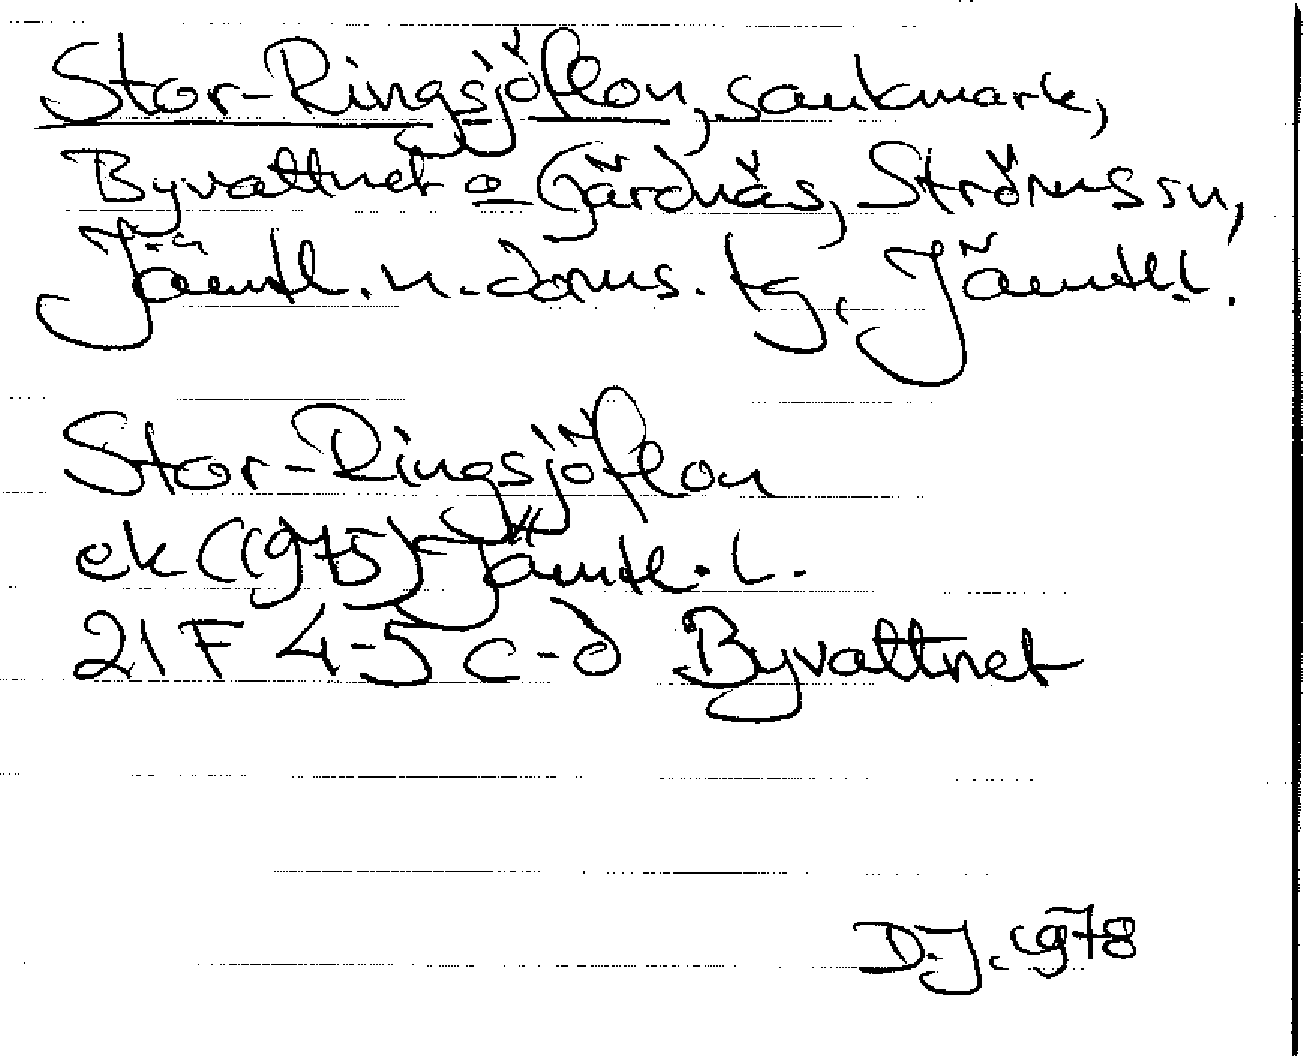 Stor-Ringsjöflon, sankmark,
Byvattnet o Gärdnäs, Ströms sn,
Jämtl. n. doms. tg, Jämtl.l.
Stor-Ringsjöflon
ek (1975) Jämtl. l.
21 F 4-5 c-d Byvattnet
D.J. 1978